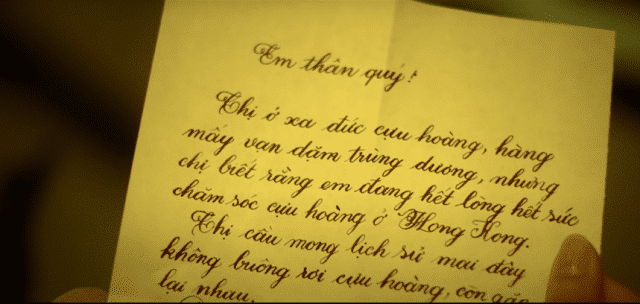 Em thân quý!
Chị ở xa đức cựu hoàng, hàng
mấy vạn dặm trùng dương, nhưng
chị biết rằng em đang hết lòng hết sức
chăm sóc cựu hoàng ở Hong Kong.
Chị cầu mong lịch sử mai đây
không buông rơi cựu hoàng, còn gặp
lại nhau.